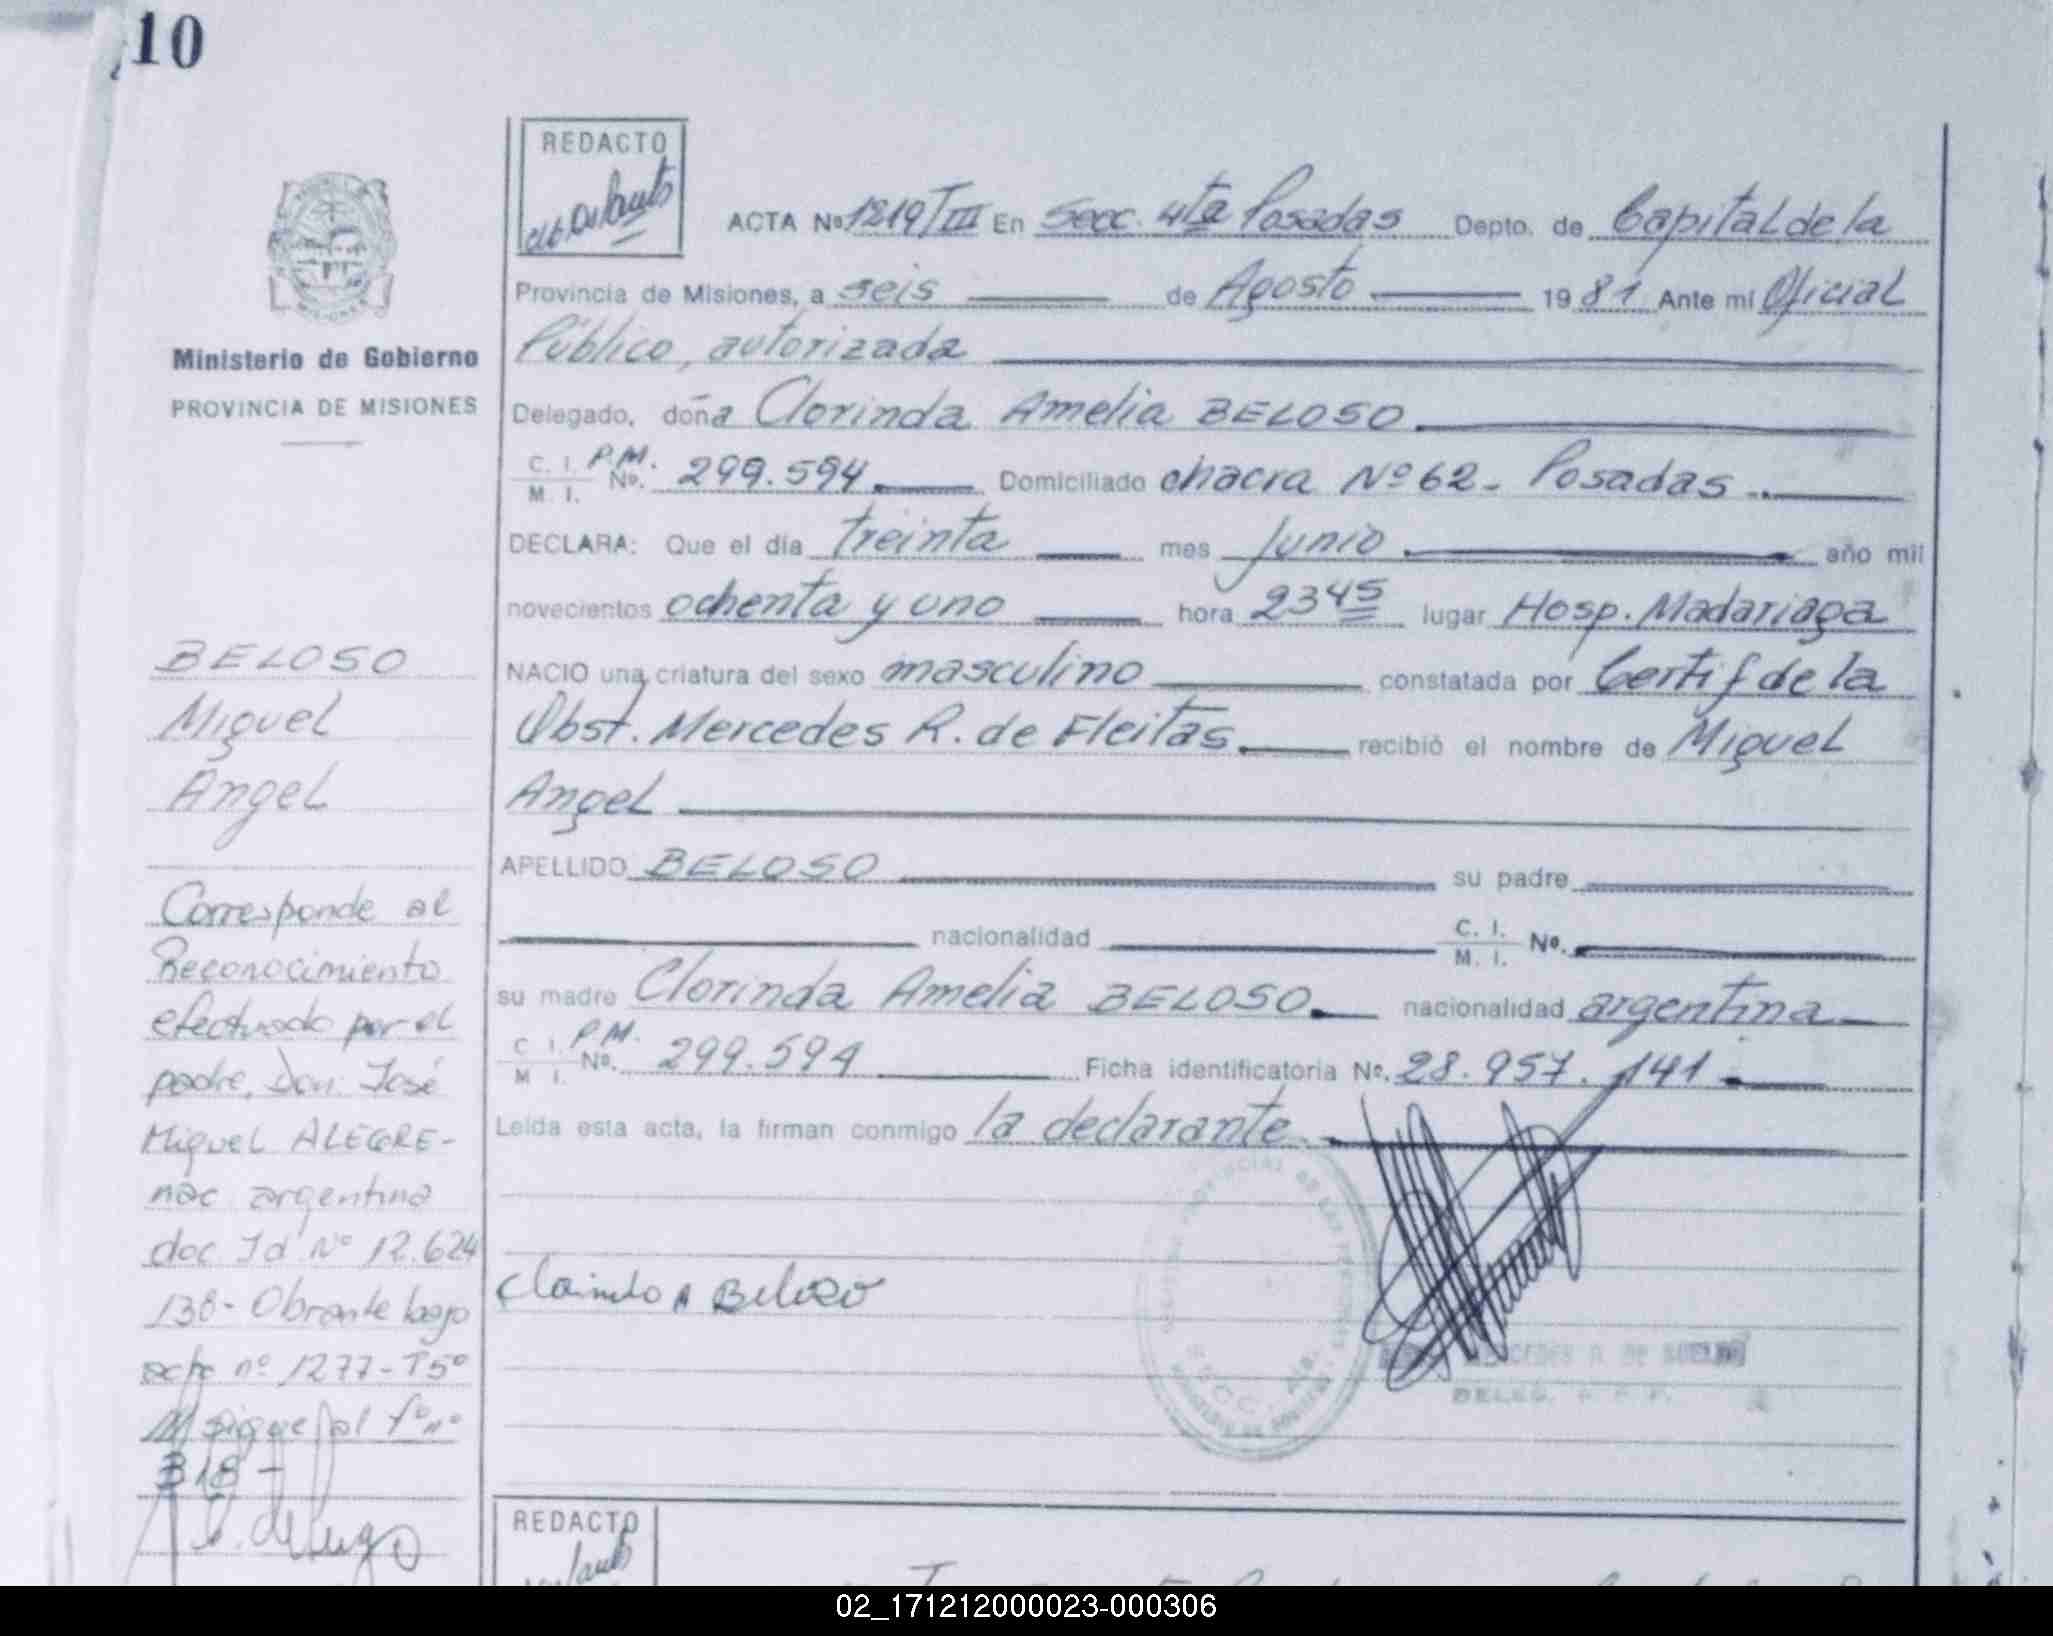 10
REDACTO
ACTA Nº 1219/III En Secc. 4ta Posadas Depto. de Capital de la
Provincia de Misiones, a seis de Agosto 1981 Ante mi Oficial
Público, autorizada
Delegado, doña Clorinda Amelia BELOSO
C. I. P.M.
M. I. Nº. 299.594 Domiciliado chacra Nº 62 - Posadas
DECLARA: Que el día treinta mes Junio año mil
novecientos ochenta y uno hora 23 45 lugar Hosp. Madariaga
NACIO una criatura del sexo masculino constatada por Certif de la
Obst. Mercedes R. de Fleitas recibió el nombre de Miguel
Angel
APELLIDO BELOSO su padre
nacionalidad C. I. M. I. Nº.
su madre Clorinda Amelia BELOSO nacionalidad argentina
C. I. P.M.
M. I. Nº. 299.594 Ficha identificatoria Nº. 28.957.141
Leída esta acta, la firman conmigo la declarante
Beloso
DELEG.
Ministerio de Gobierno
PROVINCIA DE MISIONES
BELOSO
Miguel
Angel
Corresponde al
Reconocimiento
efectuado por el
padre, Don José
Miguel ALEGRE-
nac argentina
doc Id Nº 12.624
138 - Obrante bajo
acta nº 1277 - T5º
sigue al fº nº
318 -
REDACTO
02_171212000023-000306